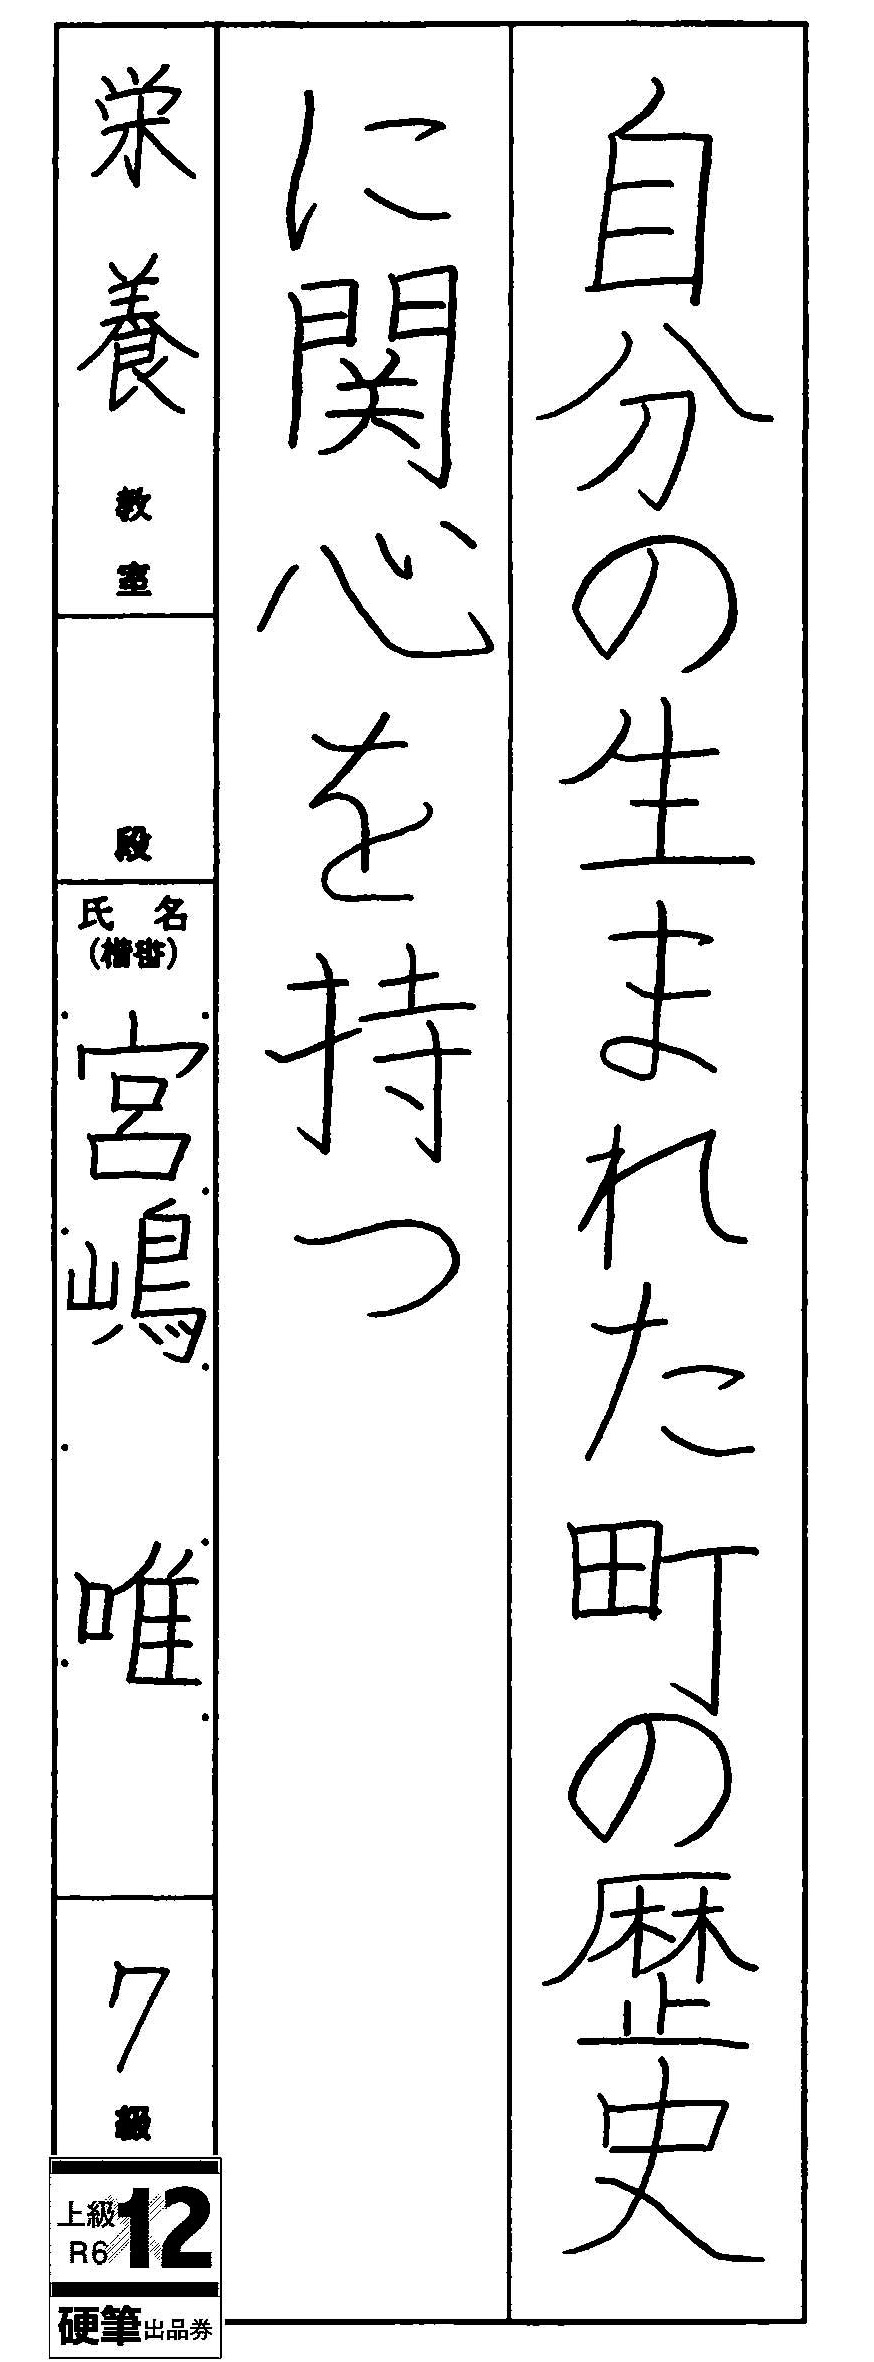 自分の生まれた町の歴史
に関心を持つ
栄養教室
段
氏名
(楷書)
宮嶋 唯
7級
上級 12
R6
硬筆出品券